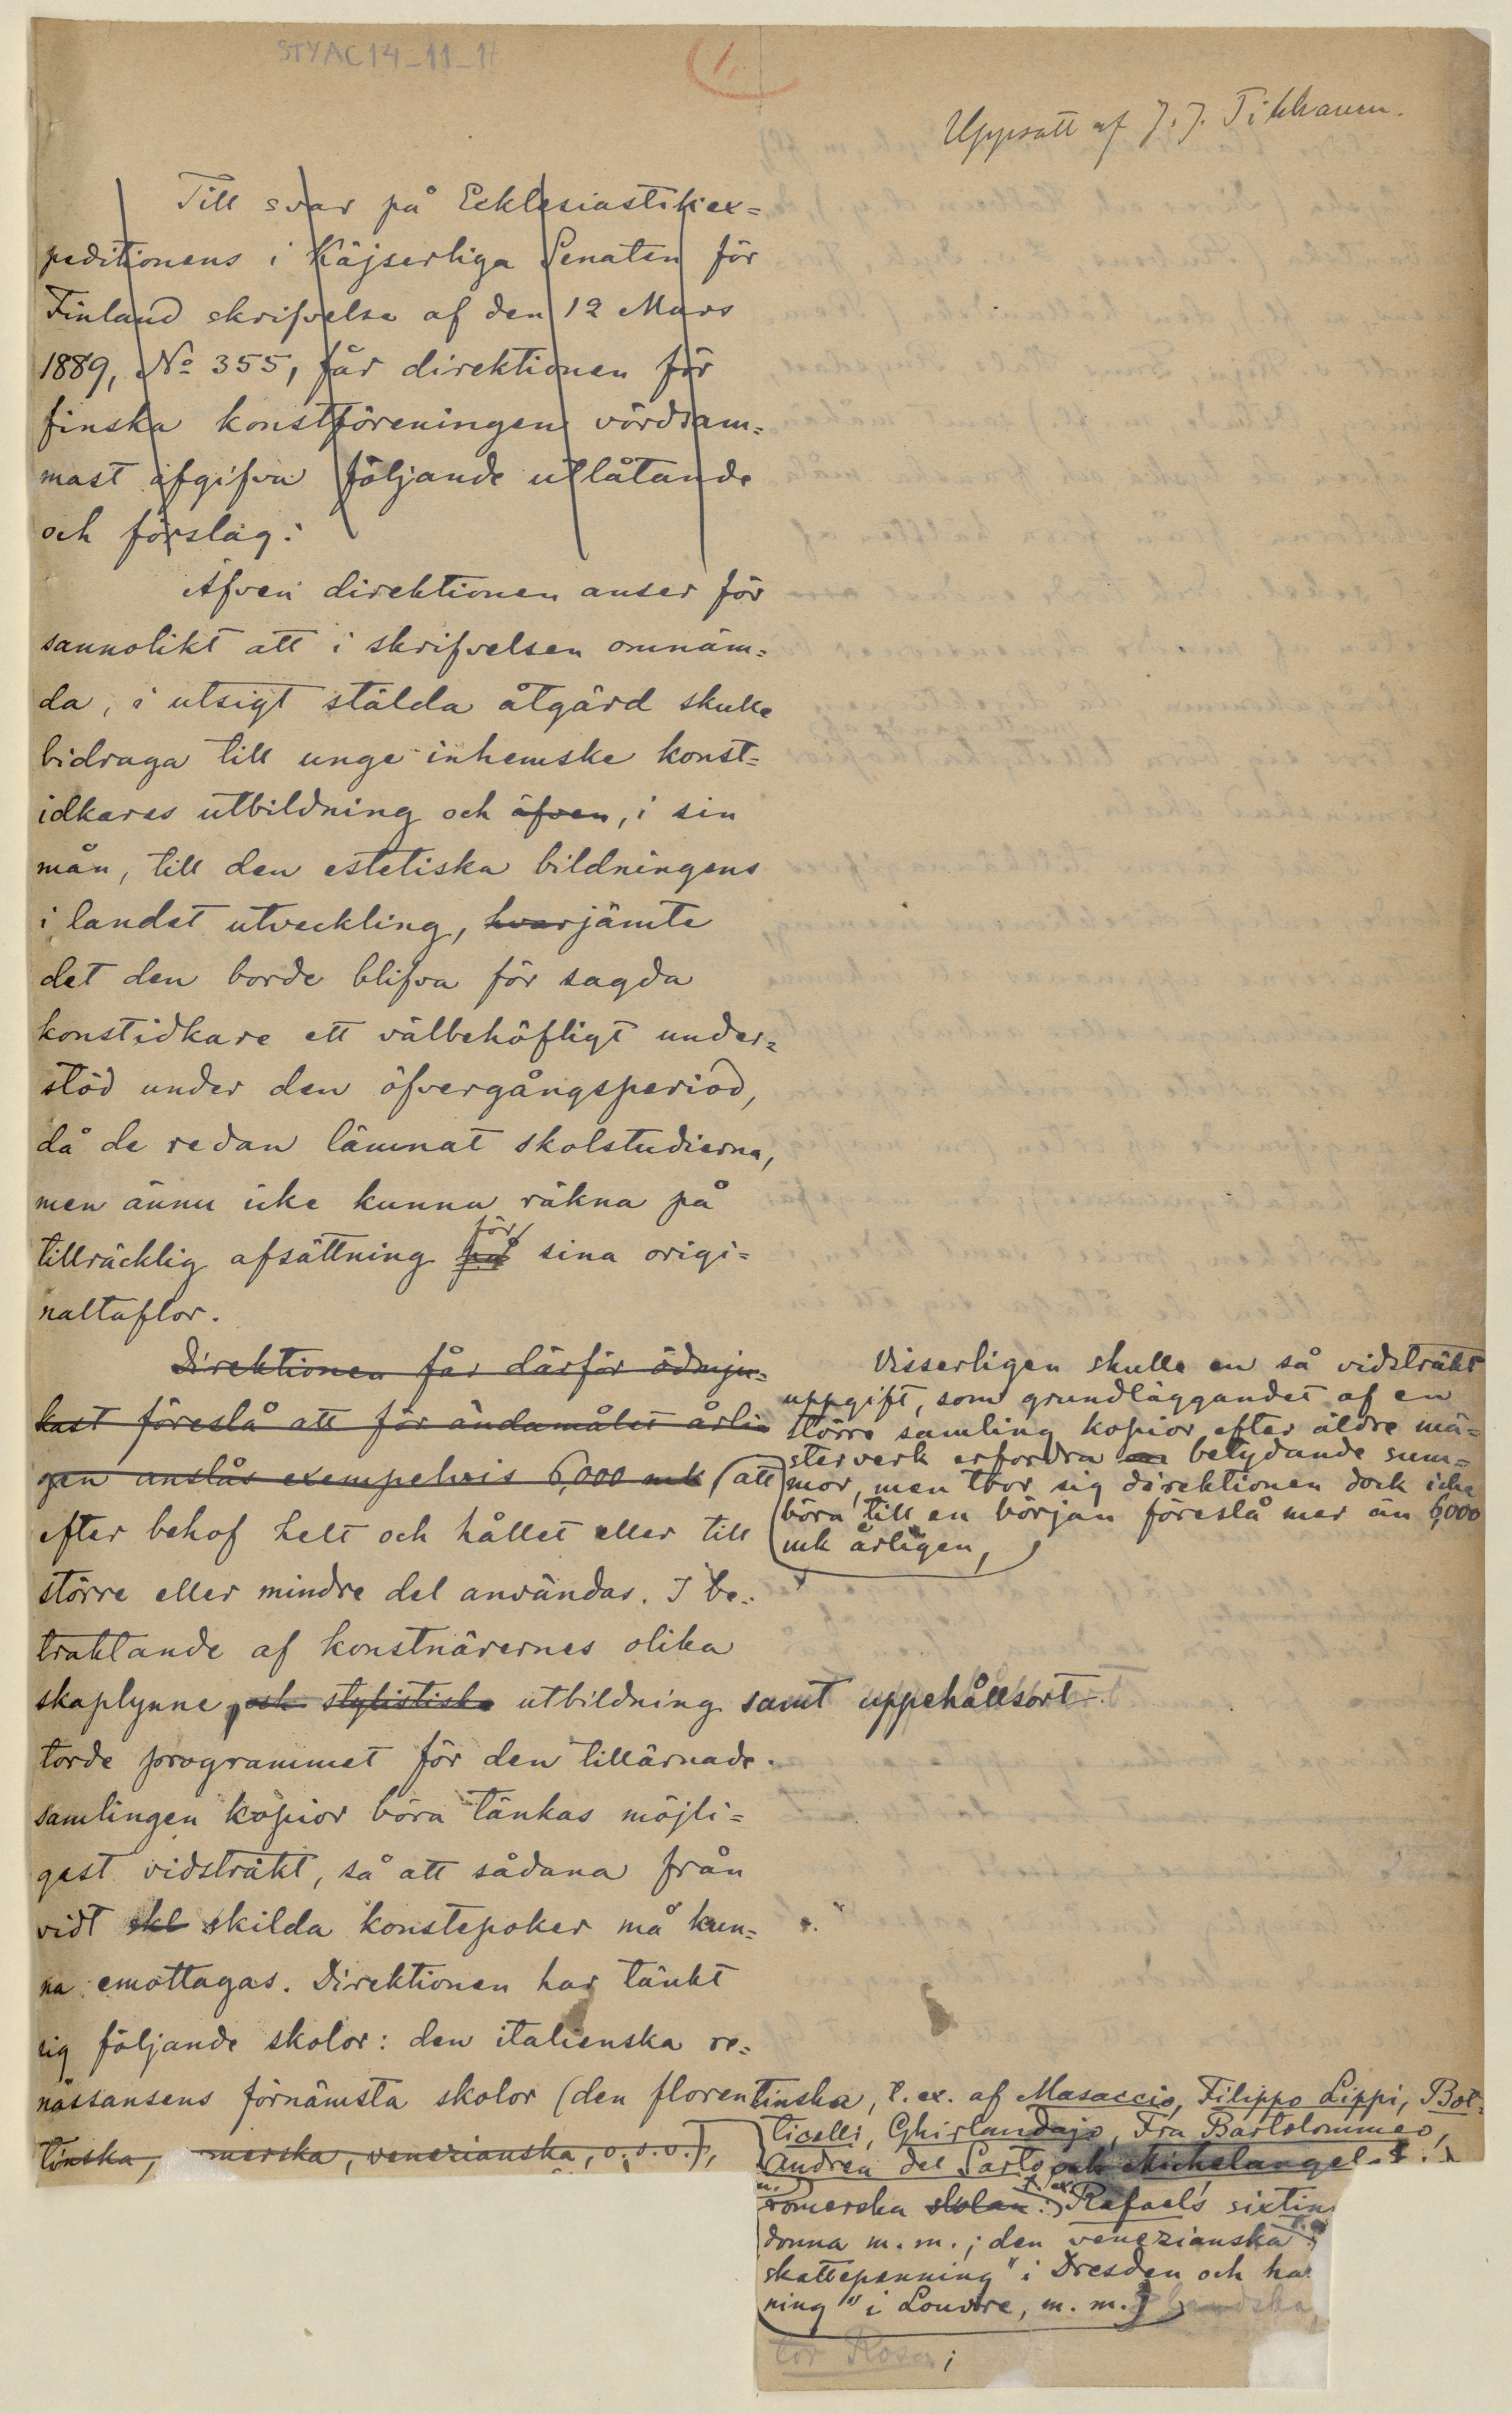 STYAC14_11_17
1.
Uppsatt af J. J. Tikkanen.
Till svar på Ecklesiastikex=
peditionens i Käjserliga Senaten för
Finland skrifvelse af den 12 Mars
1889, No 355, får direktionen för
finska konstföreningen vördsam=
mast afgifva följande utlåtande
och förslag:
Äfven direktionen anser för
sannolikt att i skrifvelsen omnäm=
da, i utsigt stälda åtgärd skulle
bidraga till unge inhemske konst=
idkares utbildning och äfven, i sin
mån, till den estetiska bildningens
i landet utveckling, hvarjämte
det den borde blifva för sagda
konstidkare ett välbehöfligt under=
stöd under den öfvergångsperiod,
då de redan lämnat skolstudierna,
men ännu icke kunna räkna på
för
tillräcklig afsättning på sina origi=
naltaflor.
Direktionen får därför ödmju=
kast föreslå att för ändamålet årli=
gen anslås exempelvis 6,000 mk (att
efter behof helt och hållet eller till
större eller mindre del användas. I be=
traktande af konstnärernes olika
skaplynne, och stylistiska utbildning samt uppehållsort
torde programmet för den tillärnade
samlingen kopior böra tänkas möjli=
gast vidsträkt, så att sådana från
vidt skl skilda konstepoker må kun=
na emottagas. Direktionen har tänkt
sig följande skolor: den italienska re=
nässansens förnämsta skolor (den florentinska, t. ex. af Masaccio, Filippo Lippi, Bot=
tinska, omerska, venezianska, o. s. v.),
Visserligen skulle en så vidsträkt
uppgift, som grundläggandet af en
större samling kopior efter äldre mä=
sterverk erfordra en betydande sum=
mor, men tror sig direktionen dock icke
böra till en början föreslå mer än 6,000
mk årligen,
ticelli, Ghirlandajo, Fra Bartolommeo,
Andrea del Sarto och Michelangelo
romerska skolan: t. ex. Rafael's sixtin
donna m. m.; den venezianska t. ex.
skattepenning" i Dresden och
ning" i Louvre, m. m.)
tor Rosa;